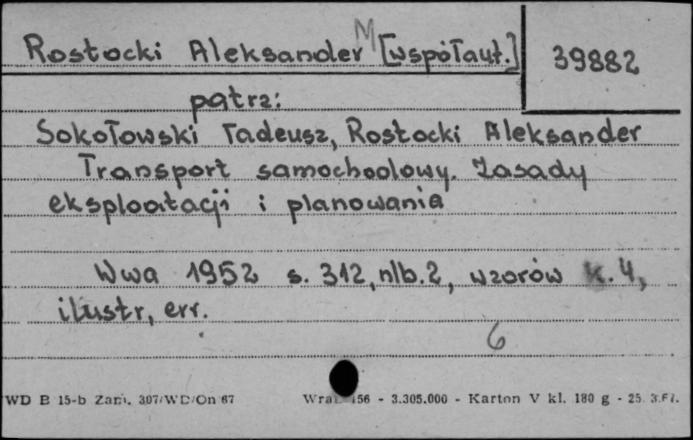 Rostocki Aleksander M [współaut.] 39882
patrz:
Sokołowski Tadeusz, Rostocki Aleksander
Transport samochodowy. Zasady
eksploatacji i planowania
Wwa 1952 s. 312, nlb. 2, wzorów k. 4,
ilustr, err.
6
WD B 15-b Zam. 307/WD/On 67 156 - 3.305.000 - Karton V kl. 180 g - 25. 3.67.